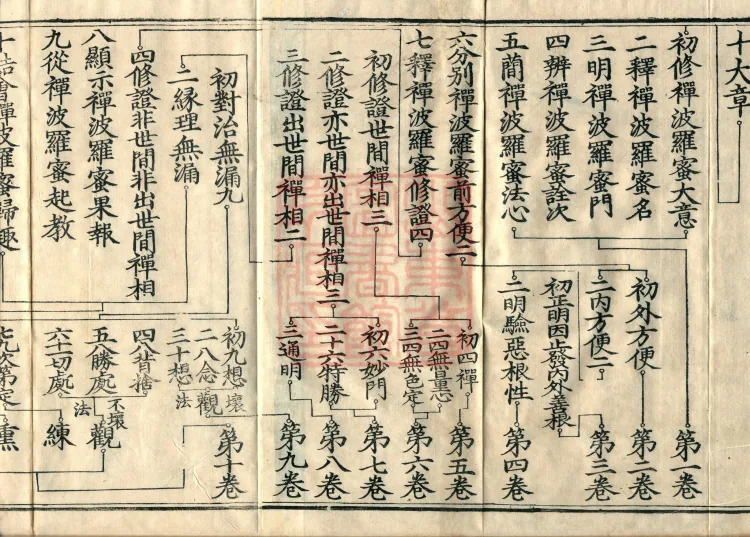 十大章
初修禪波羅蜜大意
二釋禪波羅蜜名
三明禪波羅蜜門
四辨禪波羅蜜詮次
五蕳禪波羅蜜法心
六分別禪波羅蜜前方便二
七釋禪波羅蜜修證四
初修證世間禪相三
二修證亦世間亦出世間禪相三
三修證出世間禪相二
四修證非世間非出世間禪相
初對治無漏九
二縁理無漏
八顯示禪波羅蜜果報
九從禪波羅蜜起教
十結會禪波羅蜜歸趣
初外方便
二内方便二
初正明因止發内外善根
二明驗惡根性
初四禪
二四無量心
三四無色定
初六妙門
二十六特勝
三通明
初九想
二八念
三十想
壞法觀
四八背捨
五八勝處
六十一切處
不壞法
觀
練
七九次第定
熏
第一卷
第二卷
第三卷
第四卷
第五卷
第六卷
第七卷
第八卷
第九卷
第十卷